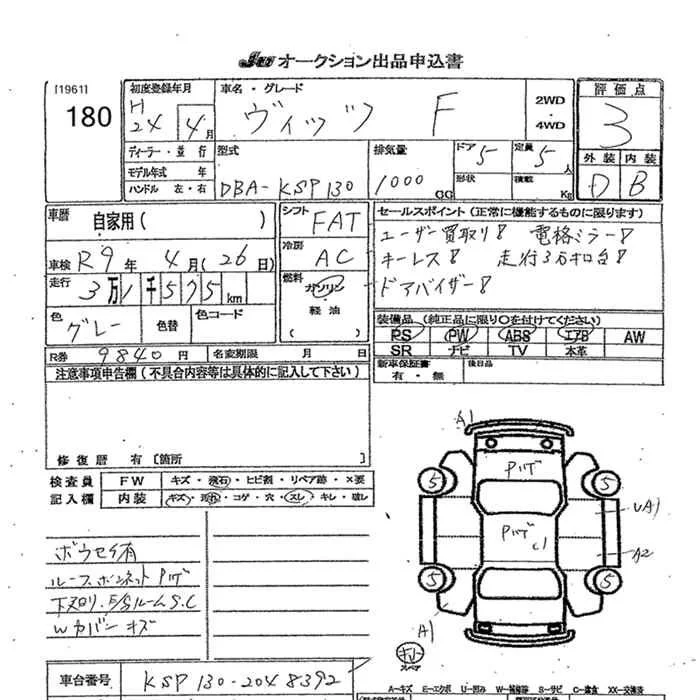 JU オークション出品申込書
[1961]
180
初度登録年月
H
24 4月
車名・グレード
ヴィッツ F
2WD
・
4WD
評価点
3
ディーラー・並行
モデル年式 年
ハンドル 左・右
型式
DBA-KSP130
排気量
1000 CC
ドア 5
定員 5人
形状
積載 Kg
外装 内装
D B
車歴 自家用( )
シフト FAT
セールスポイント(正常に機能するものに限ります)
ユーザー買取り! 電格ミラー!
キーレス! 走行3万キロ台!
ドアバイザー!
車検 R9年 4月(26日)
冷房 AC
走行 3万1千575km
燃料 ガソリン
軽油
( )
色 グレー
色替
色コード
装備品(純正品に限り○を付けてください)
PS PW ABS エアB AW
SR ナビ TV 本革
R券 9840円 名変期限 月 日
新車保証書
有・無
後日品
注意事項申告欄(不具合内容等は具体的に記入して下さい)
修復歴 有〔箇所 〕
検査員 FW キズ・飛石・ヒビ割・リペア跡・×要
記入欄 内装 キズ・汚れ・コゲ・穴・スレ・キレ・破レ
ボウセイ有
ルーフ、ボンネットPハゲ
下廻り、E/Sルーム S.C
Wカバーキズ
A1
Pハゲ
5 5
Pハゲ
C1
UA1
A2
5 5
A1
キリ
スペア
車台番号 KSP130-2048392
A-キズ E-エクボ U-凹み W-補修跡 S-サビ C-腐食 XX-交換済